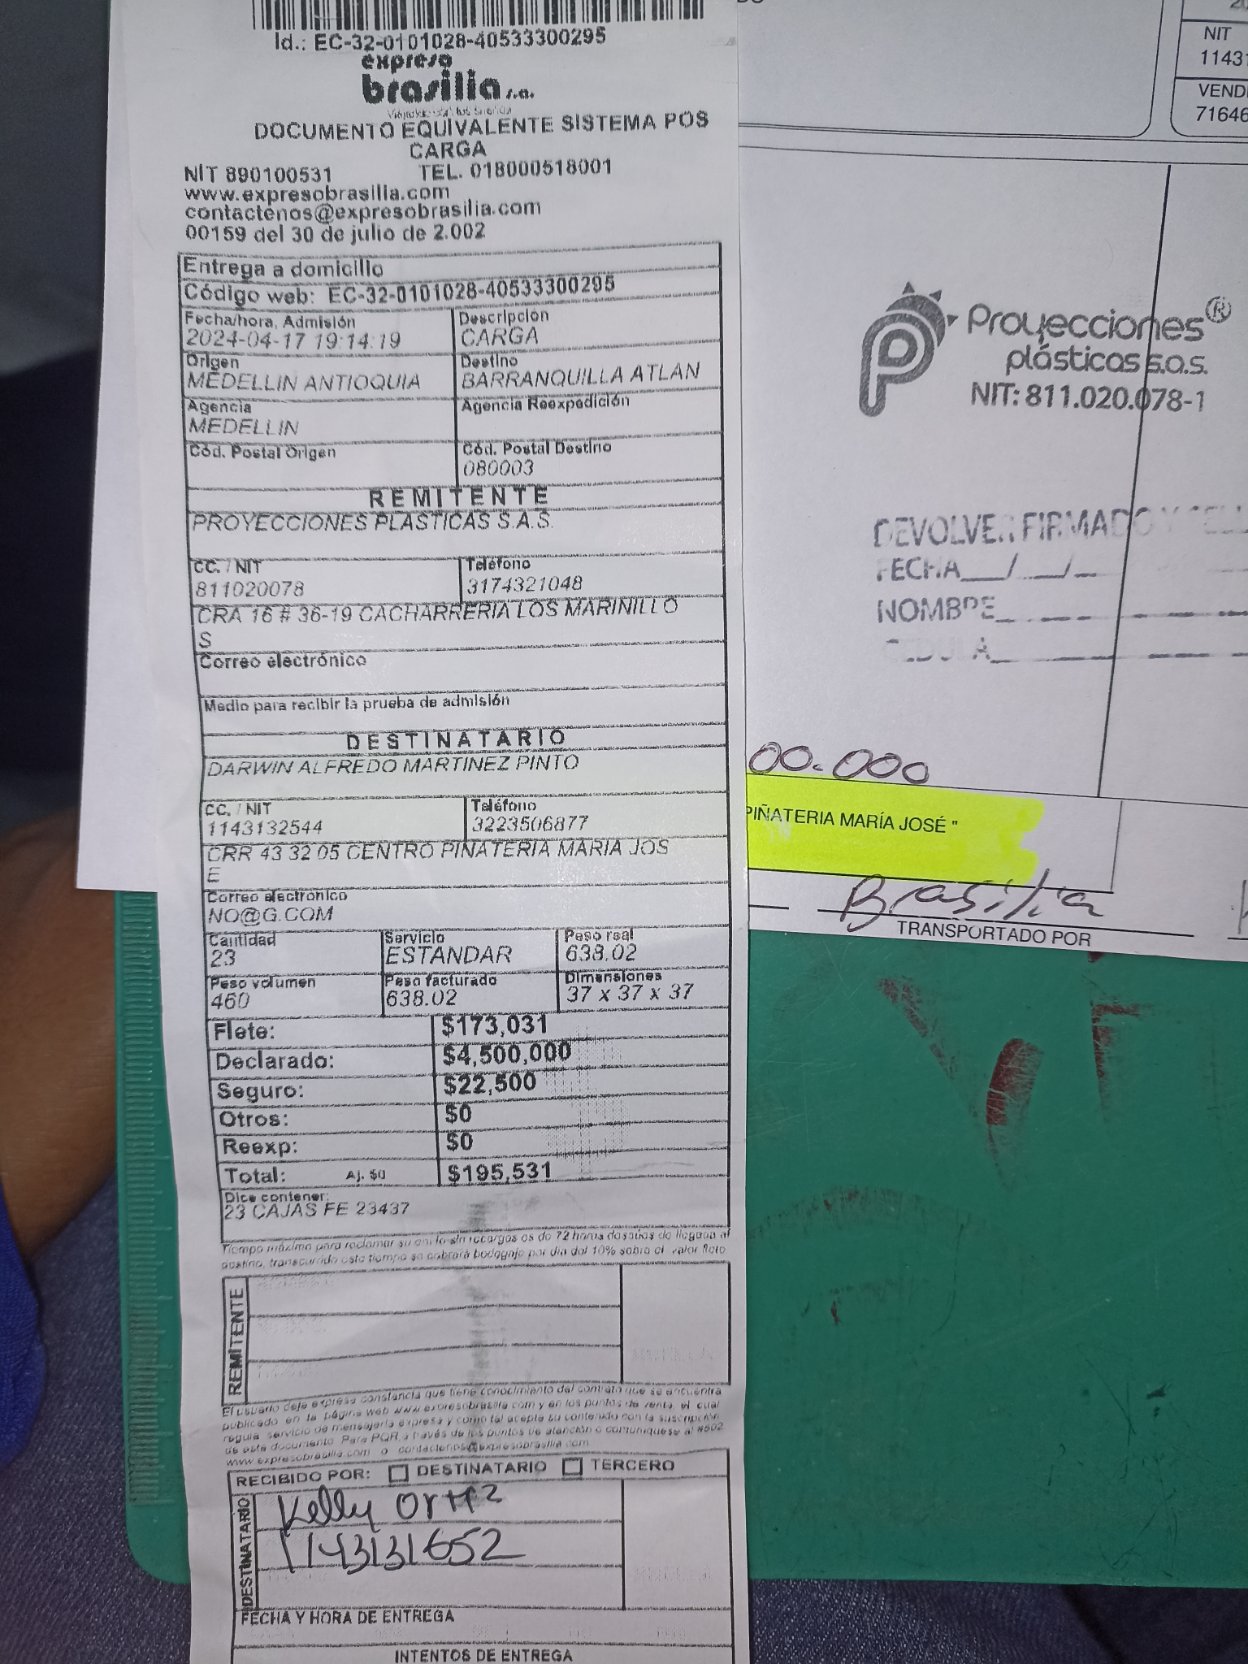 Id.: EC-32-0101028-40533300295
expreso
brasilia s.a.
DOCUMENTO EQUIVALENTE SISTEMA POS
CARGA
NIT 890100531 TEL. 018000518001
www.expresobrasilia.com
contactenos@expresobrasilia.com
00159 del 30 de julio de 2.002
Entrega a domicilio
Código web: EC-32-0101028-40533300295
Fecha/hora. Admisión Descripción
2024-04-17 19:14:19 CARGA
Origen Destino
MEDELLIN ANTIOQUIA BARRANQUILLA ATLAN
Agencia Agencia Reexpedición
MEDELLIN
Cód. Postal Origen Cód. Postal Destino
080003
REMITENTE
PROYECCIONES PLASTICAS S.A.S.
CC. / NIT Teléfono
811020078 3174321048
CRA 16 # 36-19 CACHARRERIA LOS MARINILLO
S
Correo electrónico
Medio para recibir la prueba de admisión
DESTINATARIO
DARWIN ALFREDO MARTINEZ PINTO
CC. / NIT Teléfono
1143132544 3223506877
CRR 43 32 05 CENTRO PINATERIA MARIA JOS
E
Correo electrónico
NO@G.COM
Cantidad Servicio Peso real
23 ESTANDAR 638.02
Peso volumen Peso facturado Dimensiones
460 638.02 37 x 37 x 37
Flete: $173,031
Declarado: $4,500,000
Seguro: $22,500
Otros: $0
Reexp: $0
Total: Aj. $0 $195,531
Dice contener:
23 CAJAS FE 23437
Tiempo máximo para reclamar su envío sin recargos es de 72 horas después de llegada al
destino, transcurrido este tiempo se cobrará bodegaje por día del 10% sobre el valor flete
REMITENTE
El usuario deja expresa constancia que tiene conocimiento del contrato que se encuentra
publicado en la página web www.expresobrasilia.com y en los puntos de venta, el cual
regula servicio de mensajería expresa y como tal acepta su contenido con la suscripción
de este documento. Para PQR a través de los puntos de atención o comuníquese al #502
www.expresobrasilia.com o contactenos@expresobrasilia.com
RECIBIDO POR: DESTINATARIO TERCERO
DESTINATARIO
Kelly Ortiz
1143131652
FECHA Y HORA DE ENTREGA
INTENTOS DE ENTREGA
NIT
1143
VEND
71646
Proyecciones®
plásticas s.a.s.
NIT: 811.020.078-1
DEVOLVER FIRMADO Y SELL
FECHA__/__/__
NOMBRE
CEDULA
00.000
PIÑATERIA MARÍA JOSÉ "
Brasilia
TRANSPORTADO POR